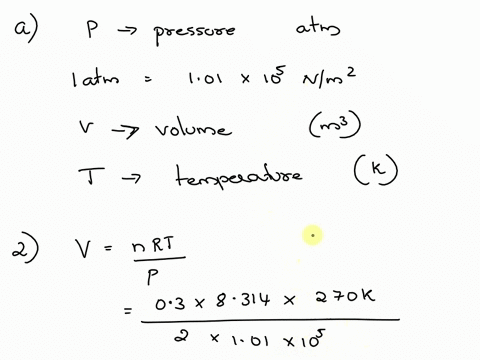 a) P → pressure atm
1 atm = 1.01 × 10⁵ N/m²
V → volume (m³)
T → temperature (K)
2) V = nRT / P
= 0.3 × 8.314 × 270K / 2 × 1.01 × 10⁵